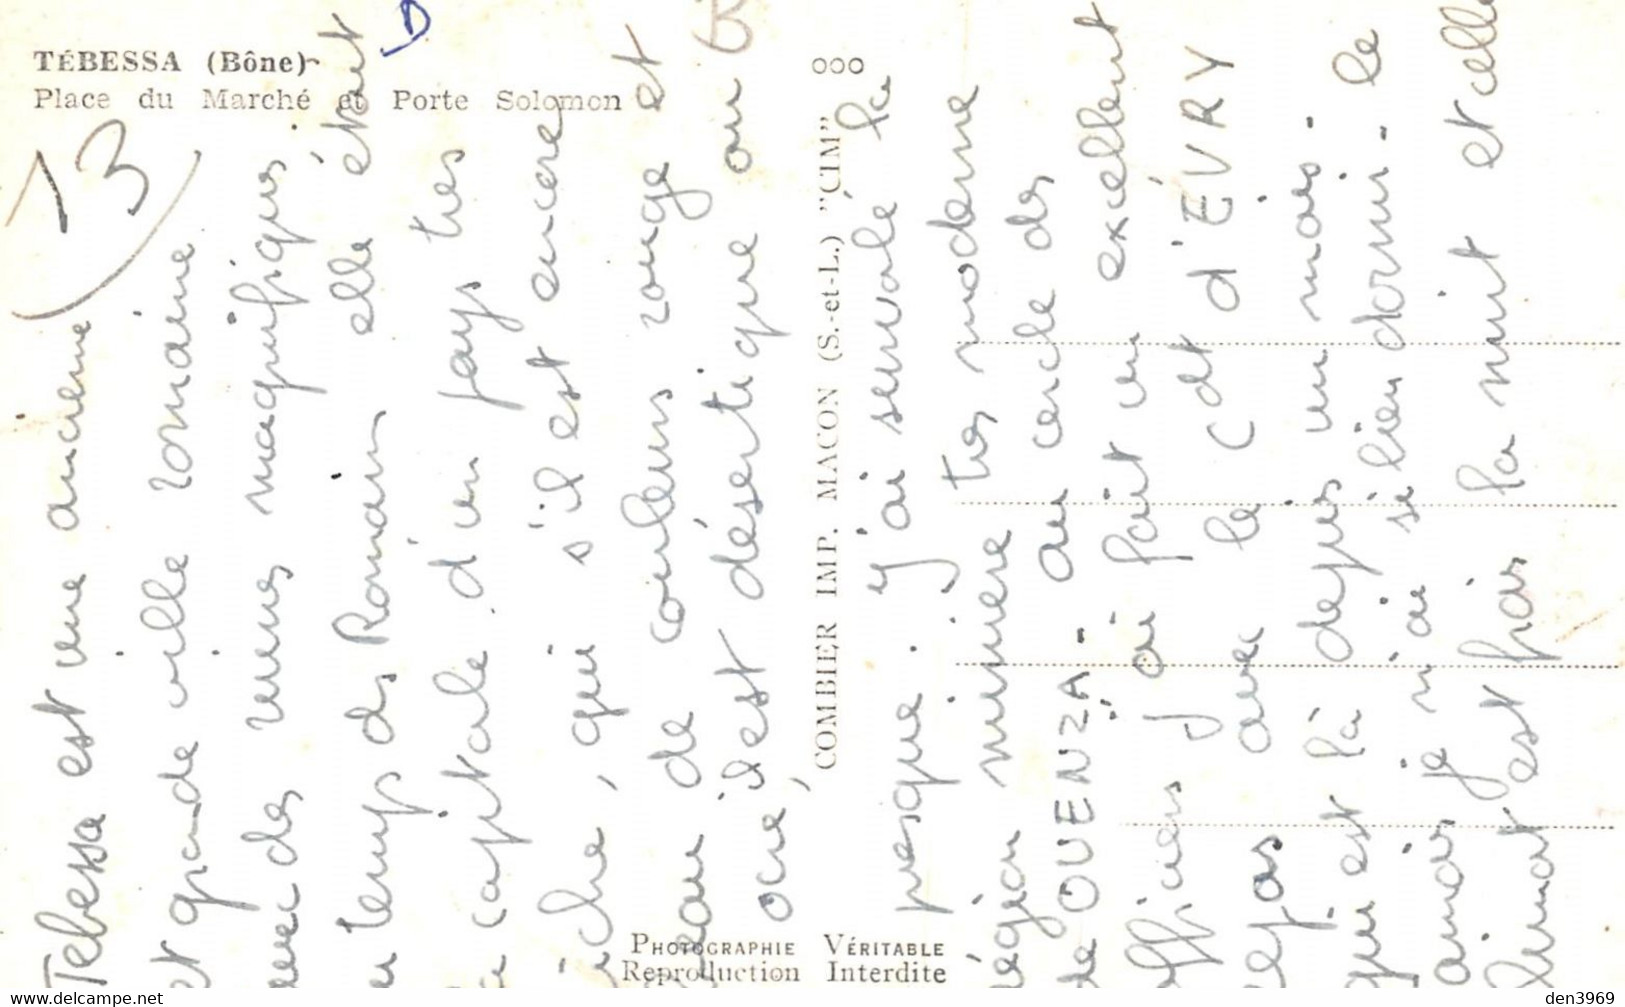 TÉBESSA (Bône)
Place du Marché et Porte Solomon
13
D
B
ooo
COMBIER IMP. MACON (S.-et-L.) "CIM"
PHOTOGRAPHIE VÉRITABLE
Reproduction Interdite
Tebessa est une ancienne
et grande ville romaine
avec des ruines magnifiques
au temps des Romains elle était
la capitale d'un pays très
riche, qui s'il est encore
beau de couleurs rouge et
ocre, il est désertique ou
presque. J'ai survolé la
région minière très moderne
de OUENZA - au cercle des
officiers j'ai fait un excellent
repas avec le Cdt d'ÉVRY
qui est là depuis un mois -
jamais je n'ai si bien dormi - le
climat est frais la nuit et celle
den3969